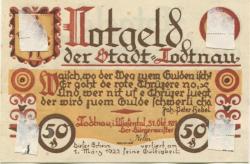 Notgeld
der Stadt Todtnau
Waisch, wo der Weg zuem Gulden isch?
Er goht de rote Chrüzere no,
Und wer nit uf e Chrüzer luegt
der wird zuem Gulde schwerli cho
Joh. Peter Hebel
Todtnau i. Wiesental 31. Okt. 1921
Der Bürgermeister
50 50
Dieser Schein verliert am
1. März 1922 seine Gültigkeit.